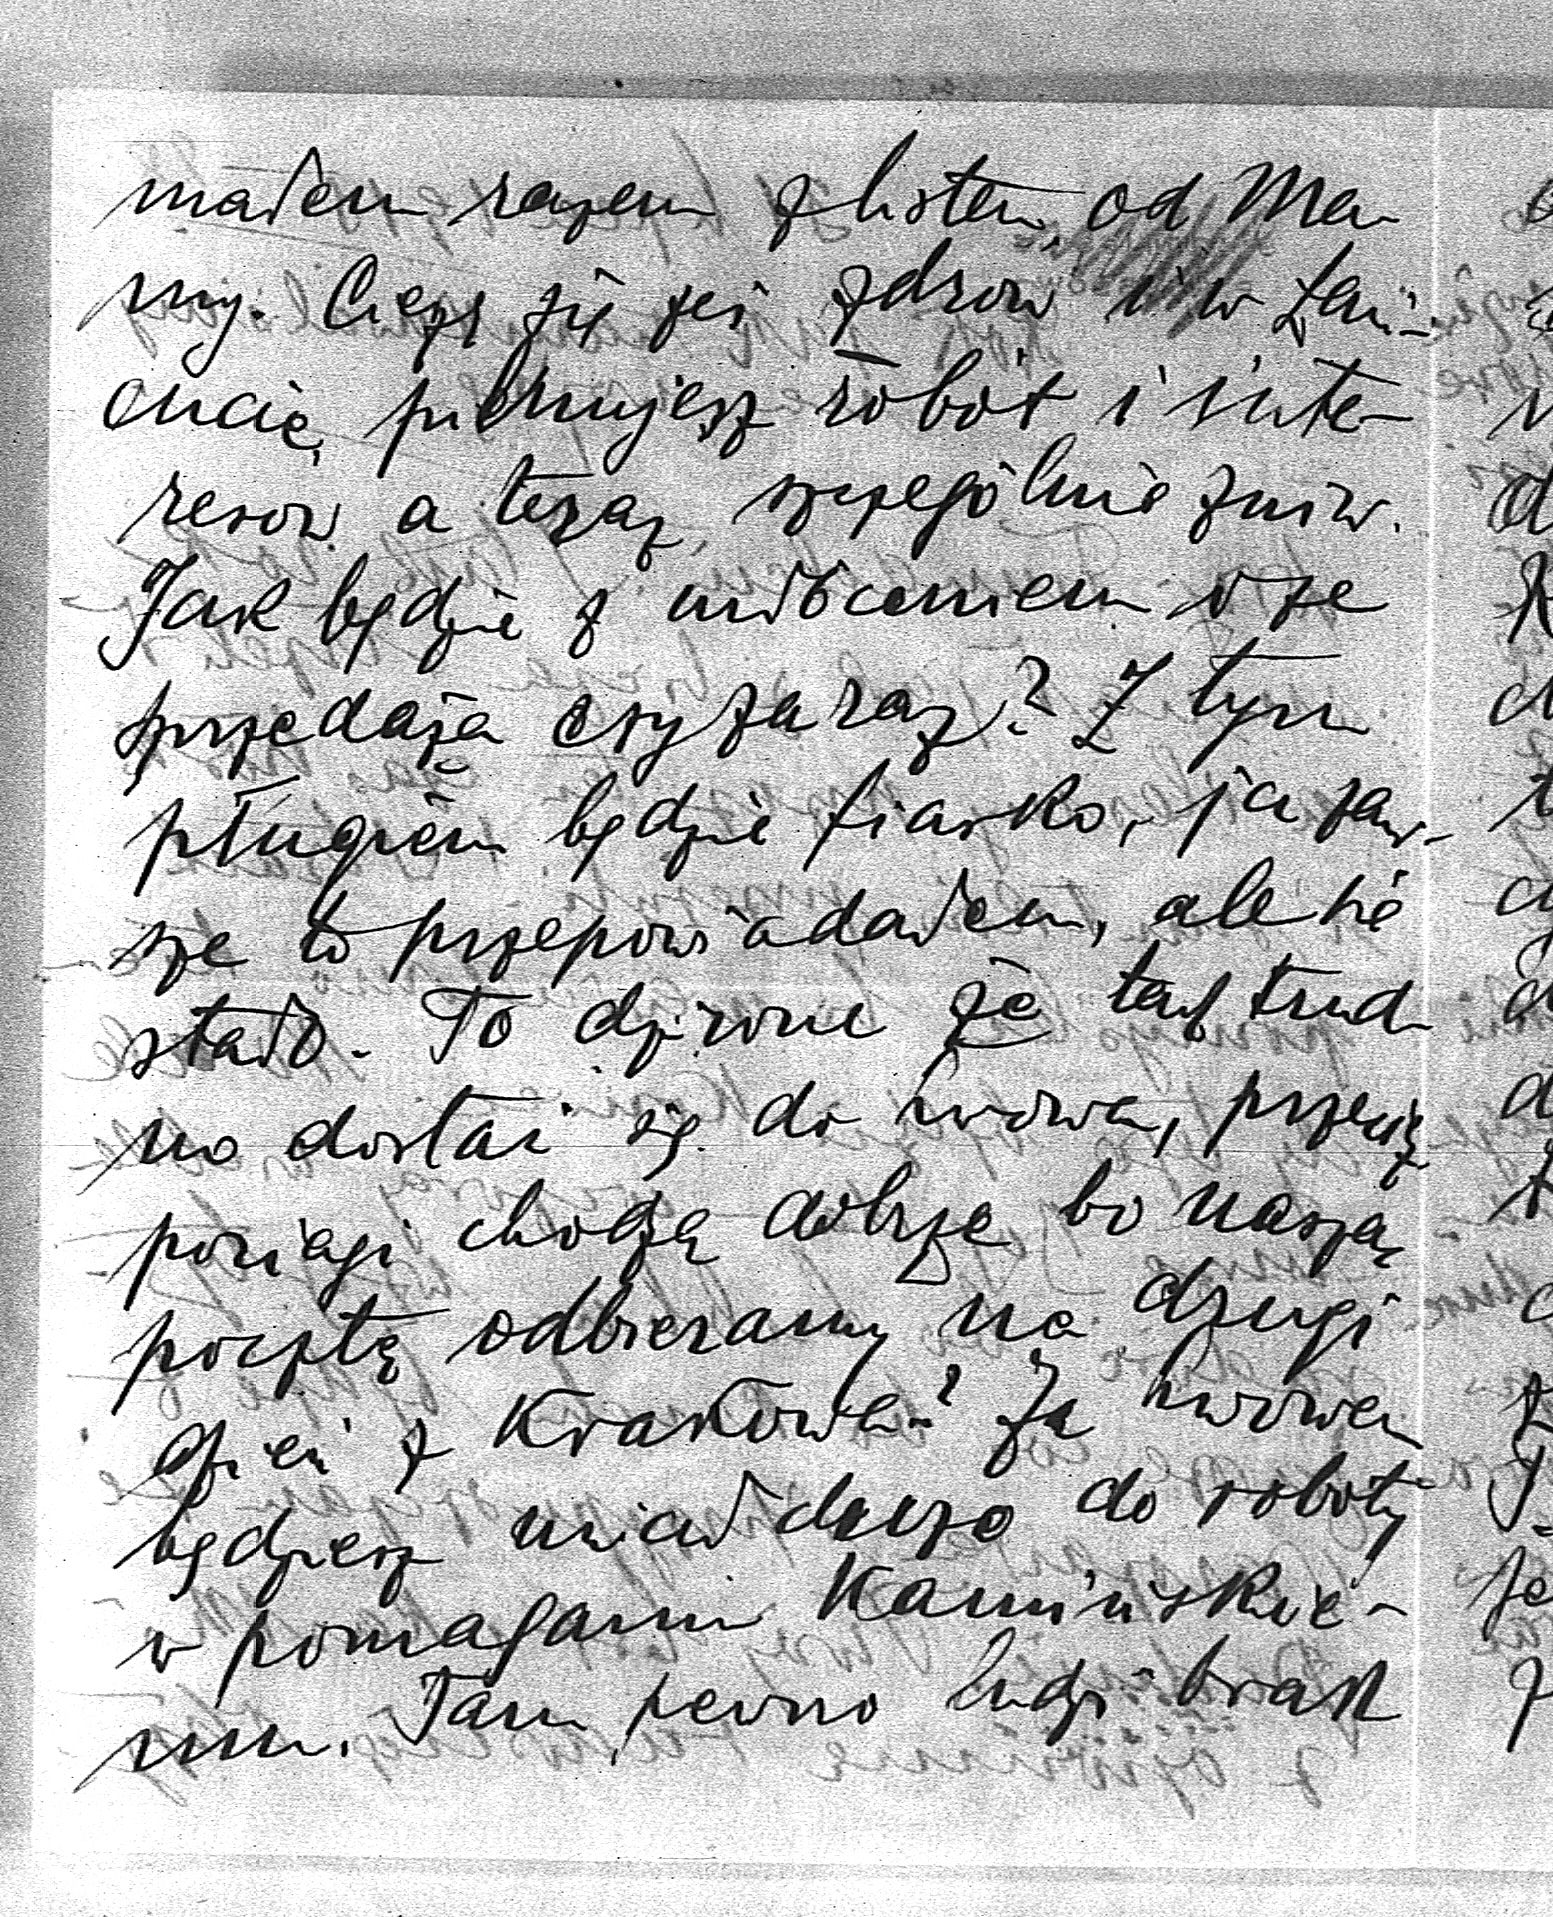 małem razem z listem od Ma-
my. Cieszę się żeś zdrów i w Łań-
cucie pilnujesz robót i inte-
resów a teraz szczególnie żniw.
Jak będzie z młóceniem i ze
sprzedażą czy zaraz? Z tym
pługiem będzie fiasko, ja zaw-
sze to przepowiadałem, ale się
stało. To dziwne że tak trud-
no dostać się do Lwowa, przecież
pociągi chodzą dobrze bo naszą
pocztę odbieramy na drugi
dzień z Krakowa? Za Lwowem
będziesz miał dużo do roboty
w pomaganiu Kamińskie-
mu. Tam pewno ludzi brak